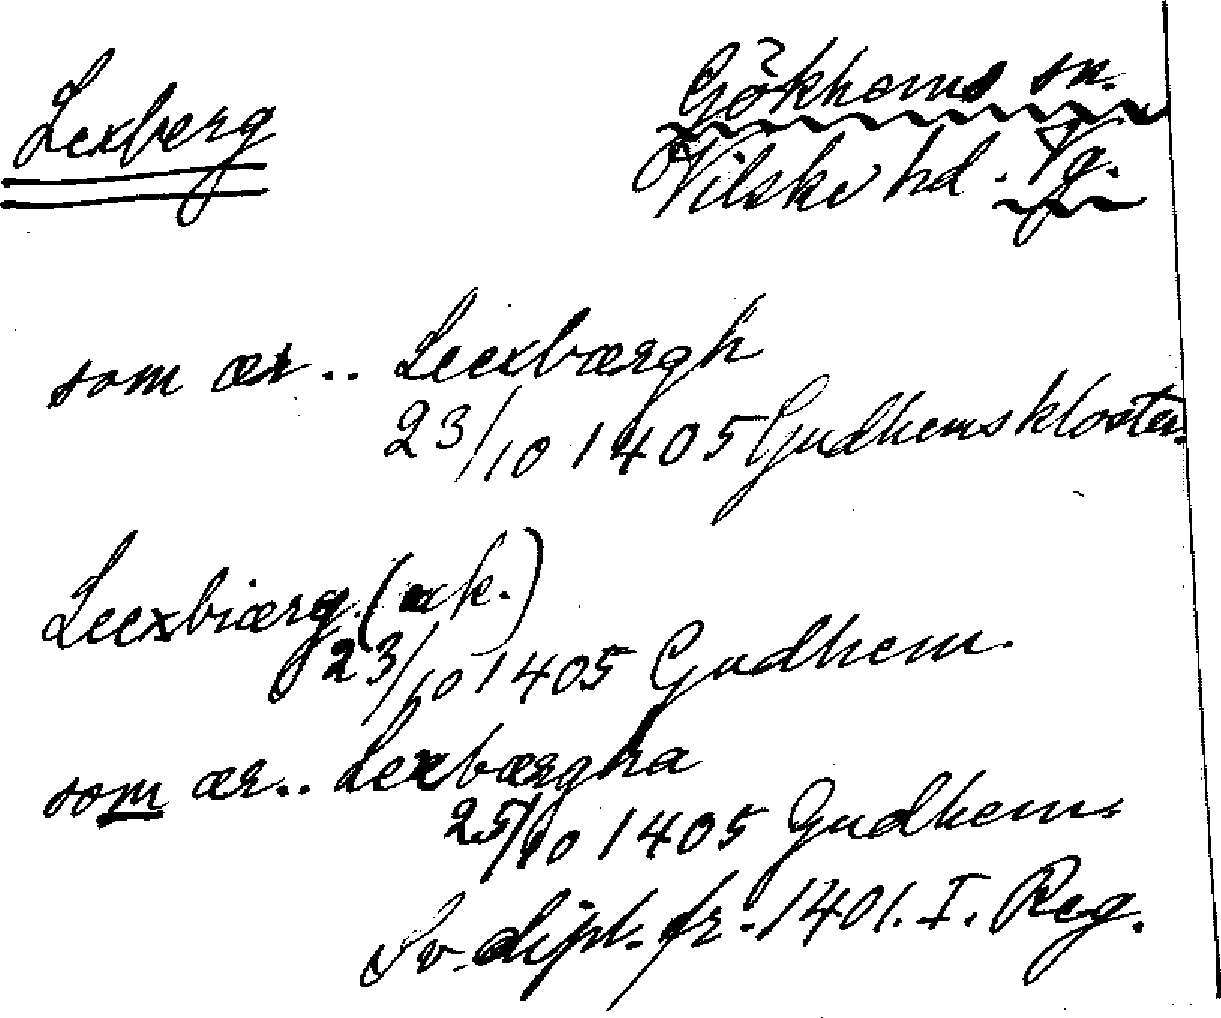 Lexberg
Gökhems sn.
Vilske hd. Vg.
som ær.. Leexbærgh
23/10 1405 Gudhems kloster.
Leexbiærg (ak.)
23/10 1405 Gudhem.
som ær.. Lexbærgha
25/10 1405 Gudhem.
Sv. dipl. fr. 1401. I. Reg.